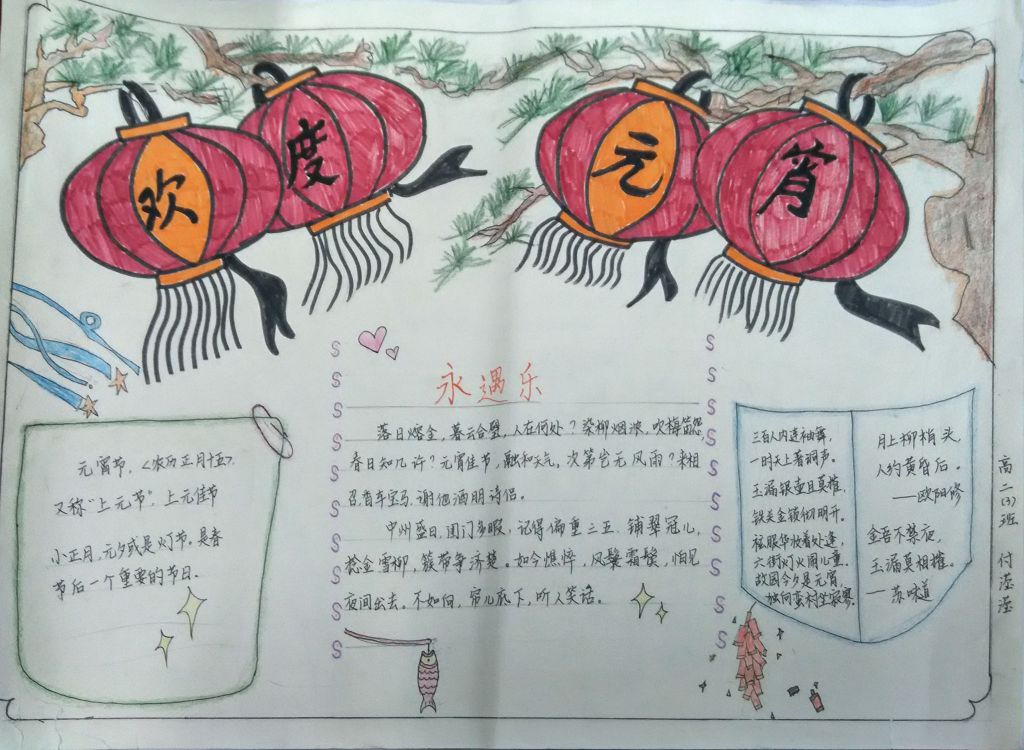 欢度元宵
元宵节,<农历正月十五>,
又称"上元节",上元佳节
小正月,元夕或是灯节。是春
节后一个重要的节日。
永遇乐
落日熔金,暮云合璧,人在何处?染柳烟浓,吹梅笛怨,
春日知几许?元宵佳节,融和天气,次第岂无风雨?来相
召香车宝马,谢他酒朋诗侣。
中州盛日,闺门多暇,记得偏重三五,铺翠冠儿,
捻金雪柳,簇带争济楚。如今憔悴,风鬟霜鬓,怕见
夜间出去。不如向,帘儿底下,听人笑语。
三百人内连袖舞,
一时天上著词声。
玉漏银壶且莫催,
铁关金锁彻明开。
六街灯火闹儿童。
故园今夕是元宵,
独向蛮村坐寂寥。
月上柳梢头,
人约黄昏后。
——欧阳修
金吾不禁夜,
玉漏莫相催。
—苏味道
高二(3)班 付滢滢